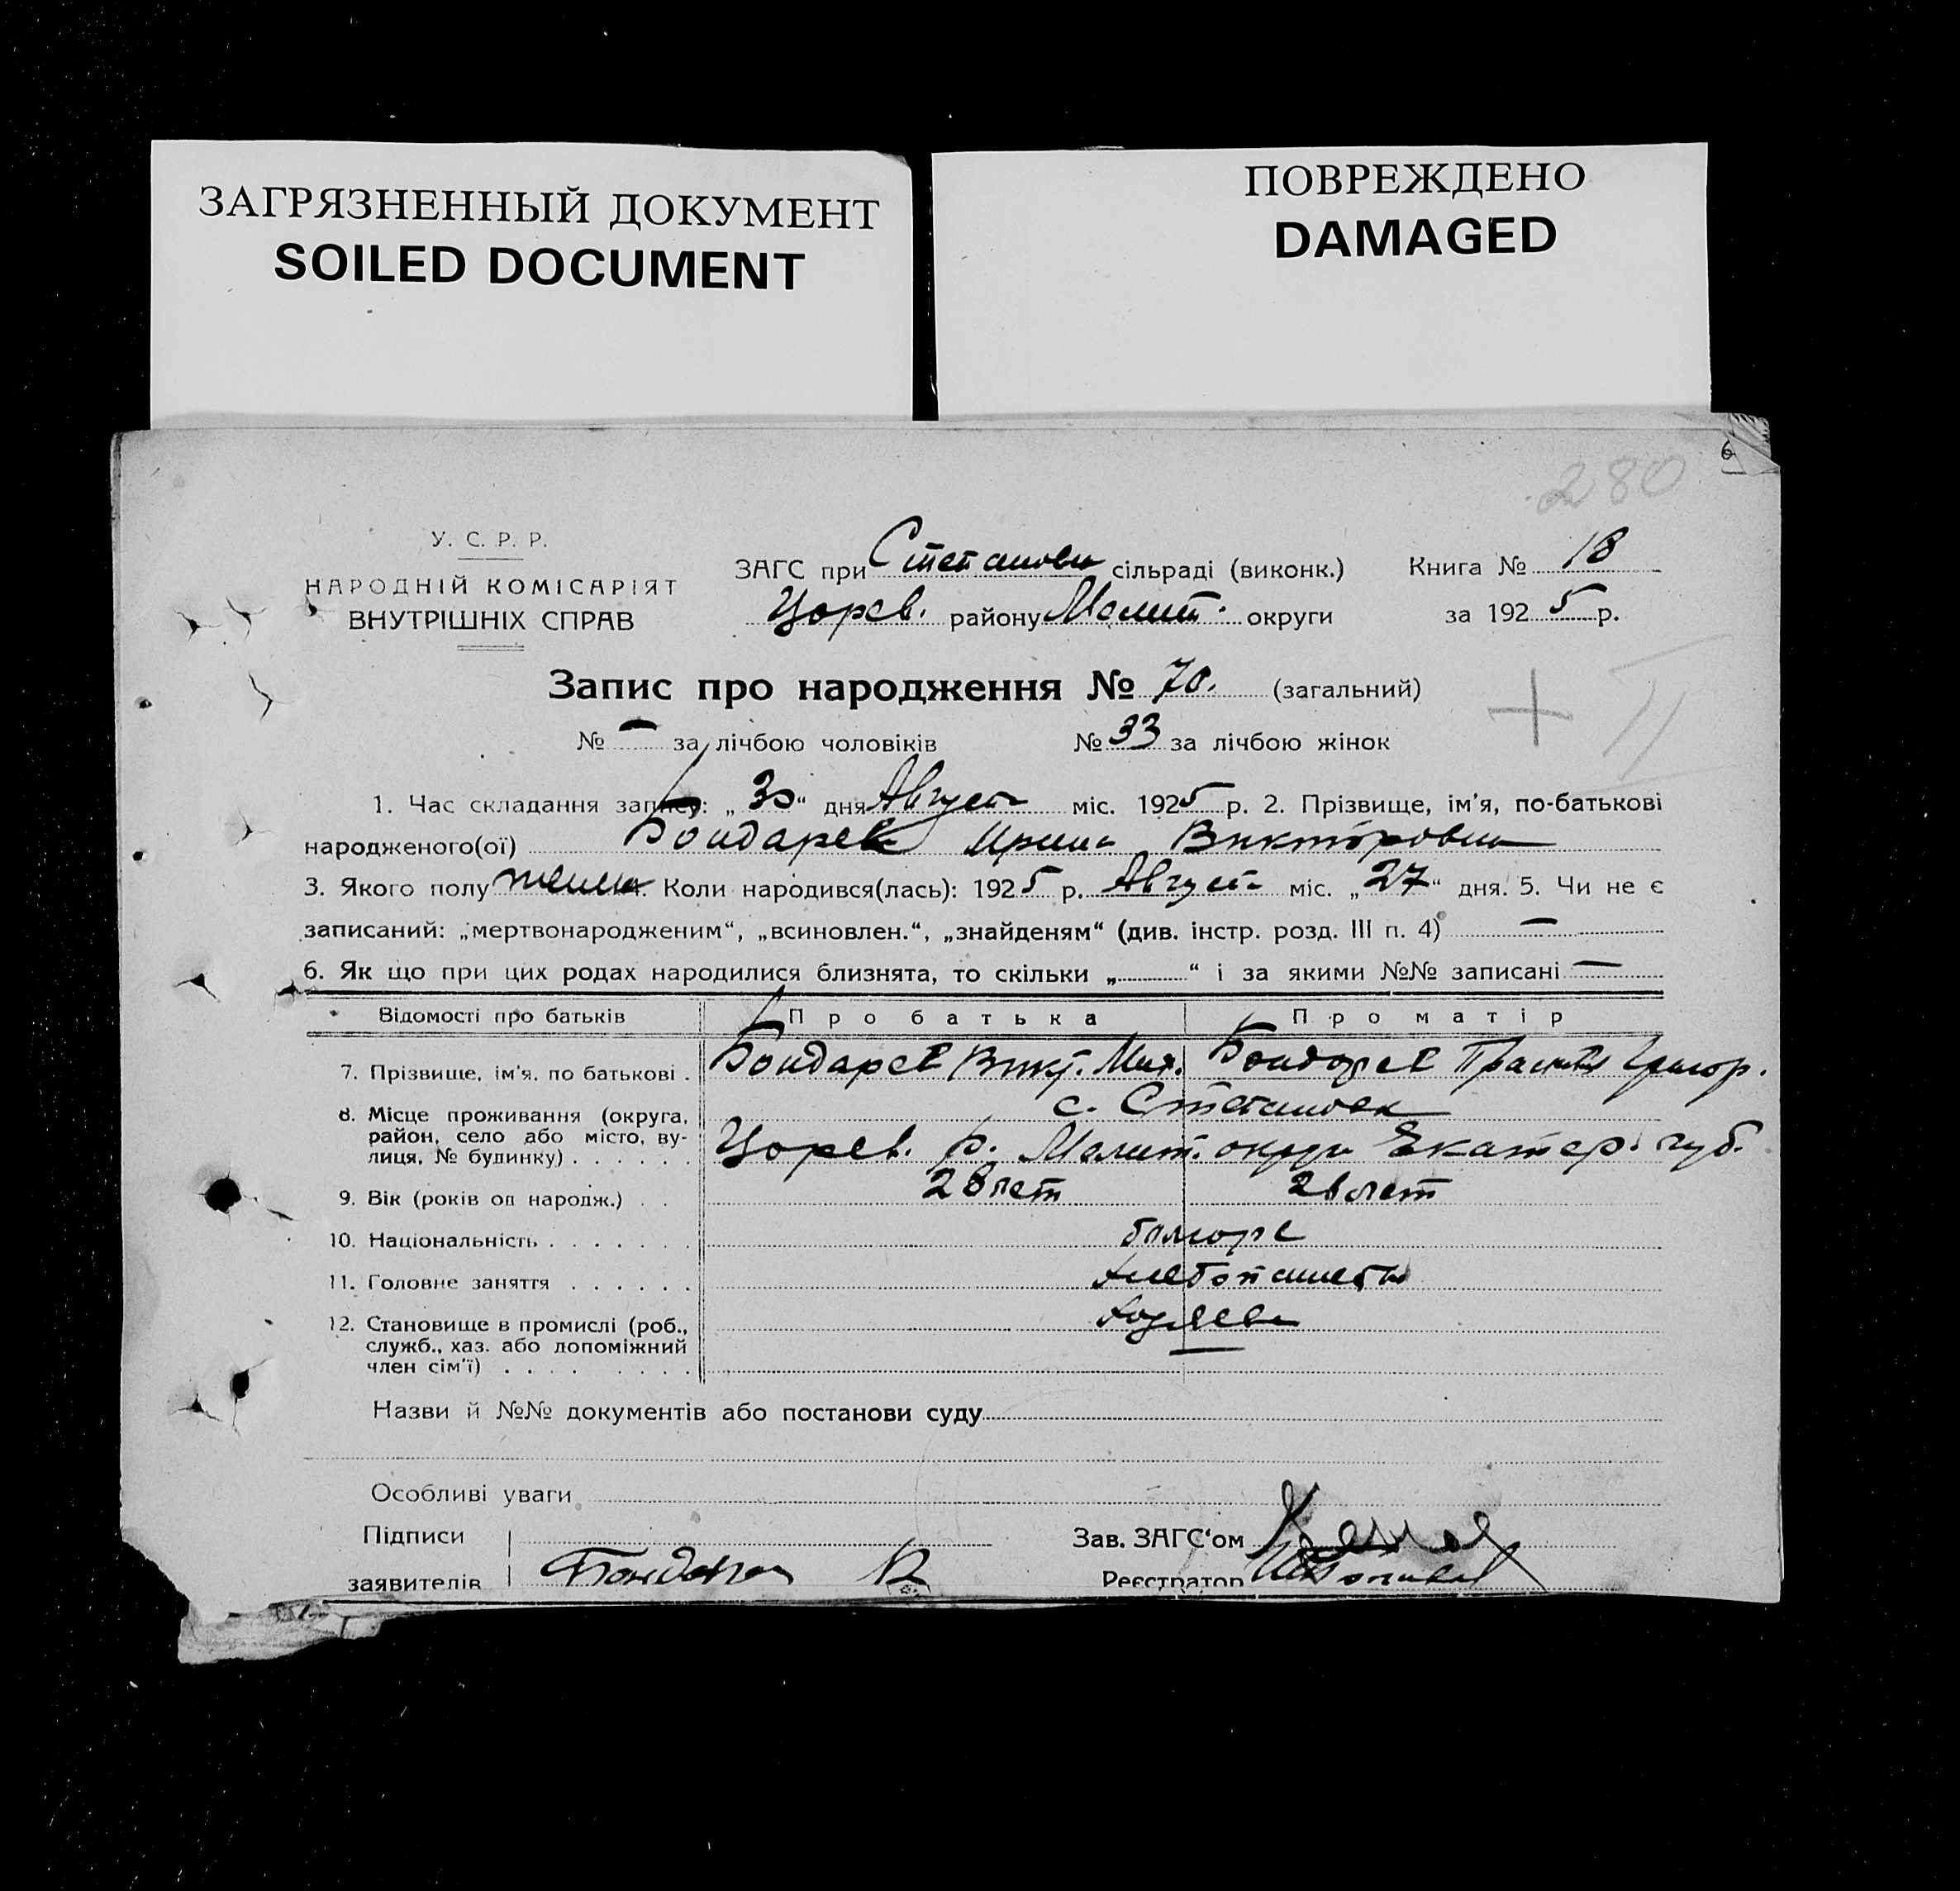 ЗАГРЯЗНЕННЫЙ ДОКУМЕНТ
SOILED DOCUMENT
ПОВРЕЖДЕНО
DAMAGED
280
У. С. Р. Р.
НАРОДНІЙ КОМІСАРІЯТ
ВНУТРІШНІХ СПРАВ
ЗАГС при Степановк сільраді (виконк.) Книга № 18
Цорев. району Мелит. округи за 1925 р.
Запис про народження № 70. (загальний)
№ — за лічбою чоловіків № 33 за лічбою жінок
1. Час складання запису: „30“ дня Август міс. 1925 р. 2. Прізвище, ім'я, по-батькові
народженого(ої) Бондарев Ирина Викторовна
3. Якого полу женск 4. Коли народився(лась): 1925 р. Август міс. „27“ дня. 5. Чи не є
записаний: „мертвонародженим“, „всиновлен.“, „знайденям“ (див. інстр. розд. III п. 4) —
6. Як що при цих родах народилися близнята, то скільки „ “ і за якими №№ записані —
Відомості про батьків Про батька Про матір
7. Прізвище, ім'я, по батькові . Бондарев Викт. Мих. Бондарев Прасков Григор.
8. Місце проживання (округа, с. Степановк
район, село або місто, ву-
лиця, № будинку) . . . . . . Цорев. р. Мелит. округи Екатер. губ.
9. Вік (років од народж.) . . 28 лет 28 лет
10. Національність . . . . . . . болгоре
11. Головне заняття . . . . . . хлебопашеств
12. Становище в промислі (роб., хозяева
служб., хаз. або допоміжний
член сім'ї) . . . . . . . .
Назви й №№ документів або постанови суду
Особливі уваги
Підписи Зав. ЗАГС'ом
заявителів Бондарев В Реєстратор